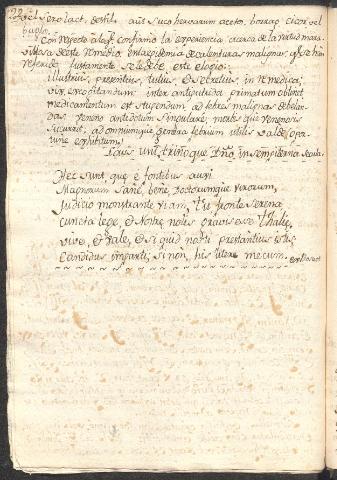 vel sero lact. destil. aut suco herbarum aceto, borag. cicor. vel
buglo.
Con respecto a la confiamo la experiencia acerca de la virtud mara
villosa de este remedio enta epidemia de calenturas malignas, q.e se han
referido, justamente se le debe este elogio:
illustrius, presentius, tutius, et celebrius, in re medica,
vix excogitandum: inter antiputrida primatum obtinet
medicamentum est stupendum, ad febres malignas debelan-
das, veneno antidotum singulare, morbis que venenosis
sucurrit, ad omniumque genera febrium utilis valde, opor-
tune exhibitum.
Laus uni, trinoque Dño, in sempiterna secula.
Hec sunt, que e fontibus auri
Magnorum, sane, bene, Doctorumque virorum,
Judicio monstrante viam, tu fronte serena
cuncta lege, et nostre notis
vive, et vale, et si quid nosti prestantius istis,
Candidus imparti; si non, his utere mecum.